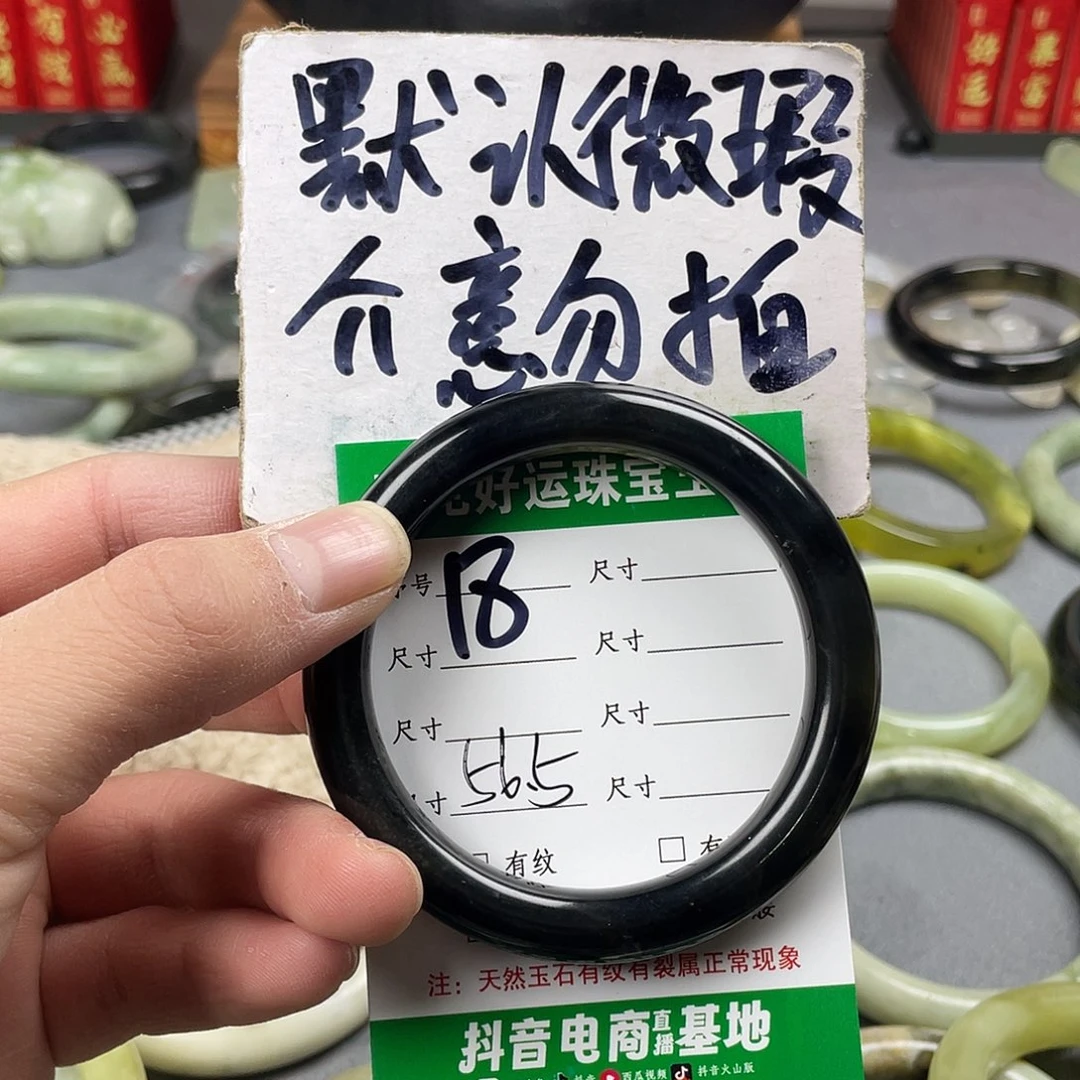 默认微瑕
介意勿拍
好运珠宝
号 18 尺寸
尺寸 尺寸
尺寸 尺寸
寸 56.5 尺寸
有纹 有
注：天然玉石有纹有裂属正常现象
抖音电商直播基地
抖音 西瓜视频 抖音火山版
好运
暴富
必赢